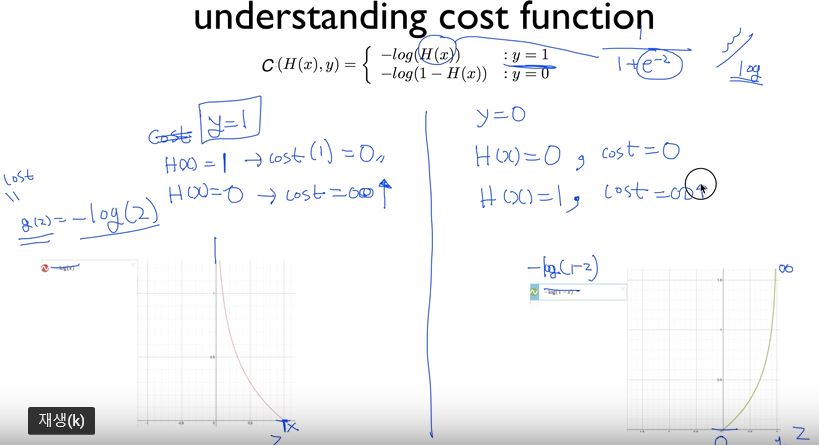 understanding cost function
C(H(x), y) = { -log(H(x)) : y = 1
-log(1 - H(x)) : y = 0
1
1+e^{-z}
log
cost y=1
H(x)=1 → cost(1)=0
H(x)=0 → cost=∞ ↑
cost
=
g(z)=-log(z)
y=0
H(x)=0, cost=0
H(x)=1, cost=∞
-log(x)
z
-log(1-z)
-log(1-x)
∞
0 1 z
재생(k)